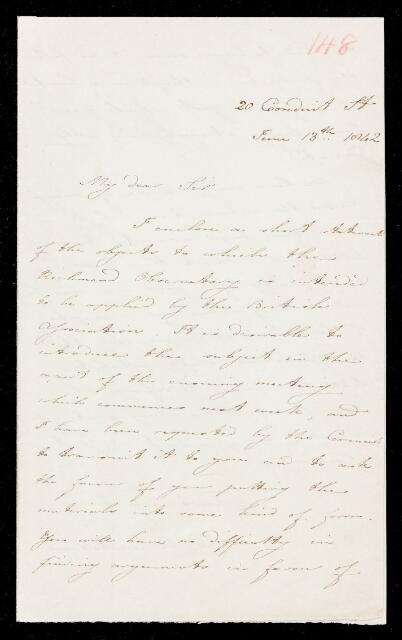 148
20 Conduit St
June 13th 1842
My dear Sir
I enclose a short statement
of the objects to which the
Richmond Observatory is intended
to be applied by the British
Association. It is desirable to
introduce the subject in the
of the ensuing meeting
which commences next week, and
I have been requested by the Council
to transmit it to you and to ask
the favor of your putting the
materials into some kind of form.
You will have no difficulty in
finding arguments in favor of